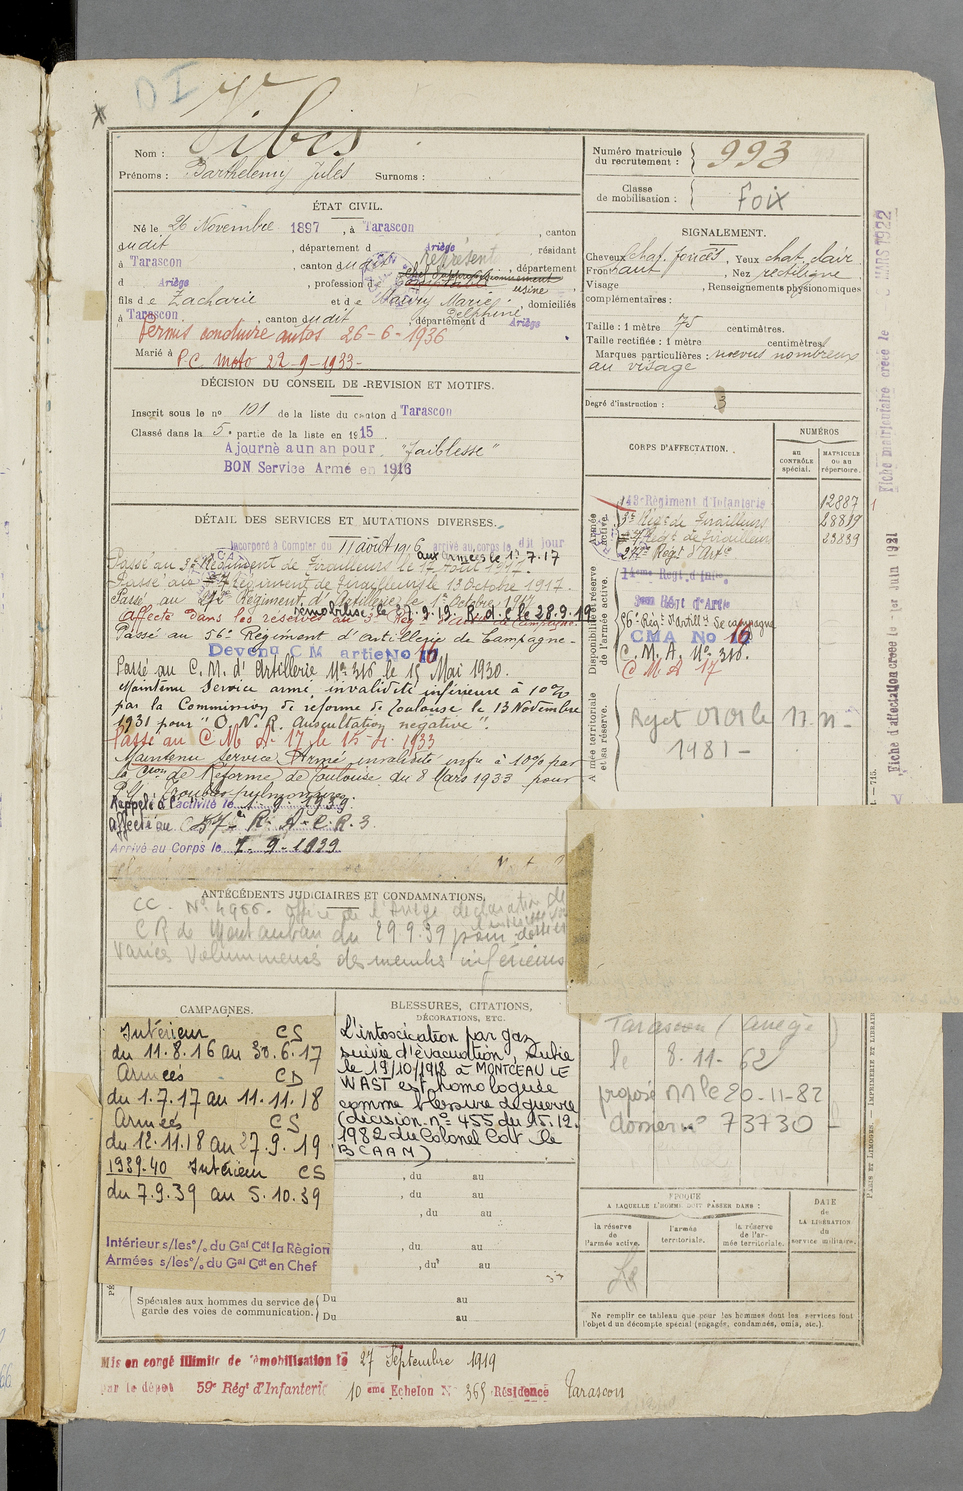 DI
Vibes
Nom :
Prénoms : Barthelemy Jules Surnoms :
Numéro matricule du recrutement : 993
Classe de mobilisation : Foix
ÉTAT CIVIL.
Né le 26 Novembre 1897, à Tarascon, canton
dudit, département d Ariège résidant
à Tarascon, canton dudit, département
d Ariège, profession de représent
usine
fils de Zacharie et de Maury Marie Delphine, domiciliés
à Tarascon, canton dudit, département d Ariège
Permis conduire autos 26-6-1936
Marié à P.C. moto 22-9-1933-
SIGNALEMENT.
Cheveux chat. foncés, Yeux chat. clair
Front haut, Nez rectiligne
Visage , Renseignements physionomiques
complémentaires :
Taille : 1 mètre 75 centimètres.
Taille rectifiée : 1 mètre centimètres.
Marques particulières : nœvus nombreux
au visage
Degré d'instruction : 3
DÉCISION DU CONSEIL DE REVISION ET MOTIFS.
Inscrit sous le n° 101 de la liste du canton d Tarascon
Classé dans la 5e partie de la liste en 1915
Ajourné a un an pour "faiblesse"
BON Service Armé en 1916
CORPS D'AFFECTATION.
NUMÉROS
au CONTRÔLE spécial.
MATRICULE ou au répertoire.
Armée active.
143e Régiment d'Infanterie 12887
3e Régt de Tirailleurs 28819
Régt de Tirailleurs 23839
272e Régt d'Artie
Disponibilité et réserve de l'armée active.
14eme Régt d'Inf.
Régt d'Artie
56e Régt d'Artillie de campagne
CMA No 16
C. M. A. No 316.
C M A 17
Armée territoriale et sa réserve.
DÉTAIL DES SERVICES ET MUTATIONS DIVERSES.
Incorporé à Compter du 11 août 1916 arrivé au corps le dit jour
aux armées le 1.7.17
Passé au 3e Régiment de Tirailleurs le 17 Août 1917.
Passé au Régiment de Tirailleurs le 13 Octobre 1917.
Passé au 272e Régiment d'Artillerie le
démobilisé le 27.9.19. R.d.C le 28.9.19
Affecté dans les réserves au
Passé au 56e Régiment d'artillerie de Campagne-
Devenu CM artie No 16
Passé au C.M. d'Artillerie No 316 le 15 Mai 1930.
Maintenu Service armé, invalidité inférieure à 10%
par la Commission de réforme de Toulouse le 13 Novembre
1931 pour "O.N.R. Auscultation négative".
Passé au C M A 17 le 15-4-1933
Maintenu service Armé invalidité infre à 10% par
la Cion de Réforme de Toulouse du 8 Mars 1933 pour
troubles pulmonaires.
Rappelé à l'activité le 1.9.1939
Affecté au C 57e R.A.C.R.3
Arrivé au Corps le 7-9-1939
ANTÉCÉDENTS JUDICIAIRES ET CONDAMNATIONS.
CC. No 4966. Office de l'Ariège déclaration de
CR de Montauban du 29 9.39 pour
Varices volumineuses des membres inférieurs
CAMPAGNES.
Intérieur CS
du 11.8.16 au 30.6.17
Armées CD
du 1.7.17 au 11.11.18
Armées CS
du 12.11.18 au 27.9.19
1939.40 Intérieur CS
du 7.9.39 au 5.10.39
Intérieur s/les°/. du Gal Cdt la Région
Armées s/les°/. du Gal Cdt en Chef
BLESSURES, CITATIONS,
DÉCORATIONS, ETC.
L'intoxication par gaz
suivie d'évacuation, subie
le 19/10/1918 à MONTCEAU LE
WAST est homologuée
comme blessure de guerre
(décision n° 455 du 15.12.
1982 du Colonel Cdt le
BCAAM)
, du au
, du au
, du au
, du au
, du au
Spéciales aux hommes du service de garde des voies de communication.
Du au
Du au
Tarascon (Ariège
le 8.11-62
proposé le 20-11-82
dossier n° 73730 -
ÉPOQUE
A LAQUELLE L'HOMME DOIT PASSER DANS :
la réserve de l'armée active.
l'armée territoriale.
la réserve de l'armée territoriale.
DATE de LA LIBÉRATION du service militaire.
Ne remplir ce tableau que pour les hommes dont les services font
l'objet d'un décompte spécial (engagés, condamnés, omis, etc.).
Mis en congé illimité de démobilisation le 27 Septembre 1919
par le dépôt 59e Régt d'Infanterie 10eme Echelon N° 365 Résidence Tarascon
Fiche matriculaire créée le MARS 1922
Fiche d'affectation créée le 1er Juin 1921
PARIS ET LIMOGES. — IMPRIMERIE ET LIBRAIRIE